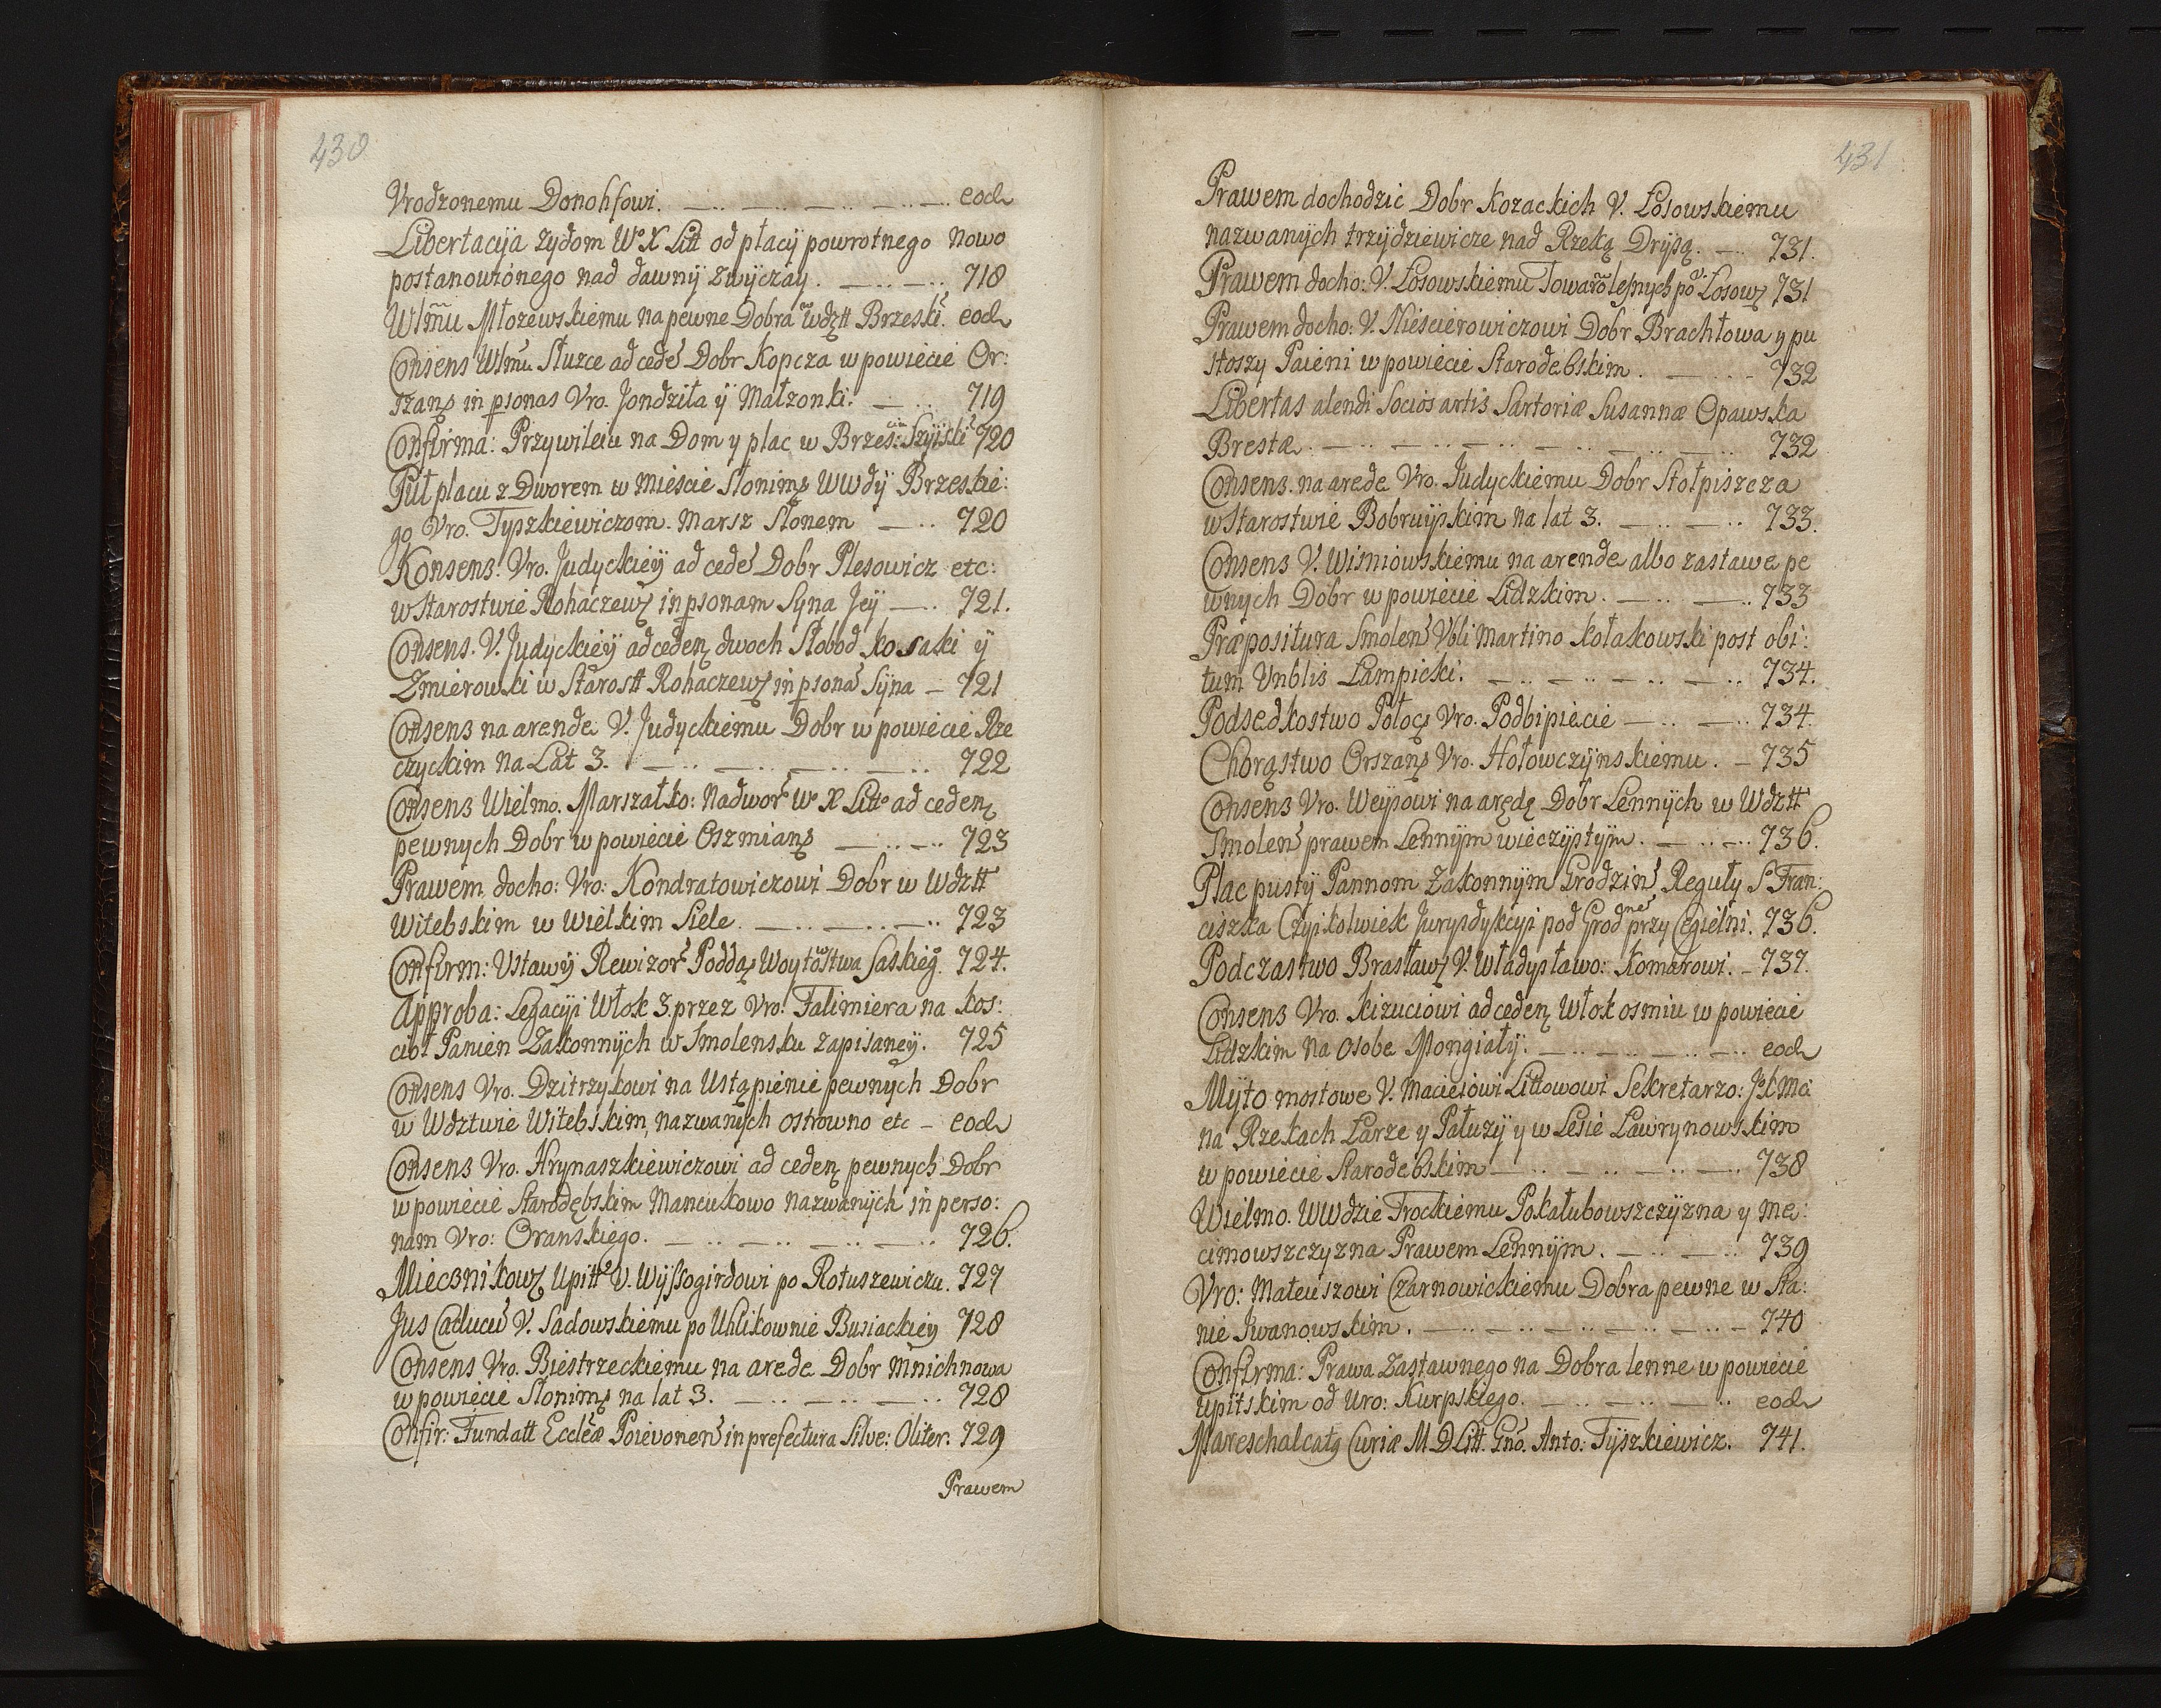 430
Vrodzonemu Donohfowi. eod
Libertacÿa Zydom Wo X Litt od płacÿ powrotnego Nowo
postanowionego nad dawnÿ Zwÿczaÿ. 718
Wlmu Młozewskiemu na pewne Dobra w wdztt Brzeskỉ. eod
Consens Wlmu Słuzce ad cede Dobr Kopcza w powiecie Or:
szans in psonas Vro. Jondziła ÿ Małzonki. 719
Confirma: Przywileiu na Dom y plac w Brzes: Szÿiski 720
Puł placu z Dworem w Miescie Słonims Wwdÿ Brzeskie:
go Vro. Tyszkiewiczom. Marsz Słonem 720
Konsens. Vro. Judyckieÿ ad cede Dobr Plesowicz etc:
w Starostwie Rohaczew in psonam Syna Jeÿ 721.
Consens. V. Judyckieÿ ad ceden dwoch Słobod Kosaki ÿ
Zmierowki w Starostt Rohaczew in psona Sÿna 721
Consens na arende V. Judyckiemu Dobr w powiecie Rze
czyckim na Lat 3. 722
Consens Wielmo. Marszałko: Nadwor Wo X Litto ad ceden
pewnych Dobr w powiecie Oszmians 723
Prawem docho: Vro: Kondratowiczowi Dobr w Wdztt
Witebskim w Wielkim Siele. 723
Confirm: Ustawÿ Rewizor Poddas Woytostwa Saskieg. 724.
Approba: Legacÿi Włok 3 przez Vro. Falimiera na Kos:
cioł Panien Zakonnÿch w Smolensku zapisaneÿ. 725
Consens Vro. Dzitrzykowi na Ustąpienie pewnÿch Dobr
w Wdztwie Witebskim, nazwanÿch ostrowno etc eod
Consens Vro. Hrynaszkiewiczowi ad ceden pewnych Dobr
w powiecie Starodębskim Mancukowo nazwanÿch in perso:
nam Vro: Oranskiego. 726.
Miecznikow Upitt V. Wÿssogirdowi po Rotuszewiczu. 727
Jus Caducu V. Sadowskiemu po Uhlikownie Busiackieÿ 728
Consens Vro. Biestrzeckiemu na arede Dobr Mnichnowa
w powiecie Słonims na lat 3. 728
Confir: Fundatt Ecclæ Poievonen in prefectura Silve: Oliter: 729
Prawem
431
Prawem dochodzic Dobr Kozackich V. Łosowskiemu
nazwanÿch trzÿdziewicze nad Rzeką Drÿsą. 731.
Prawem docho: V. Łosowskiemu Towaro lesnych po V. Łosow 731
Prawem docho: V. Niescierowiczowi Dobr Brachłowa y pu
stoszy Paieni w powiecie Starodebskim. 732
Libertas alendi Socios artis Sartoriæ Susannæ Opawska
Brestæ. 732
Consens. na arede Vro. Judyckiemu Dobr Stołpiszcza
w Starostwie Bobruÿskim na lat 3. 733.
Consens V. Wisniowskiemu na arende albo zastawe pe
wnych Dobr w powiecie Lidzkim. 733
Præpositura Smolen Vbli Martino Kołakowski post obi:
tum Vnblis Łampicki. 734.
Podsedkostwo Połocs Vro. Podbipiecie 734.
Chorąstwo Orszans Vro. Hołowczÿnskiemu. 735
Consens Vro. Weÿsowi na arędę Dobr Lennÿch w Wdztt
Smolen prawem Lennÿm wieczÿstÿm. 736.
Plac pustÿ Pannom Zakonnÿm Grodzin Regułÿ S. Fran:
ciszka Czyikolwiek Jurysdykcÿi pod Grodne przy Cegielni. 736.
Podczastwo Brasław V. Władysławo: Komarowi. 737.
Consens Vro. Kizuciowi ad ceden Włok osmiu w powiecie
Lidzkim na osobe Mongiałÿ. eod
Mÿto mostowe V. Macieiowi Littowowi Sekretarzo: JoKMci
na Rzekach Łarze y Pałuzÿ y w Lesie Ławrynowskim
w powiecie Starodebskim 738
Wielmo. WWdzie Trockiemu Pokałubowszczÿzna y Me:
cimowszczyzna Prawem Lennÿm. 739
Vro: Mateuszowi Czarnowickiemu Dobra pewne w Sta:
nie Jwanowskim. 740
Confirma: Prawa Zastawnego na Dobra lenne w powiecie
upitskim od Uro: Kurpskiego. eod
Mareschalcatq Curiæ M D Litt. Gno. Anto: Tÿszkiewicz. 741.